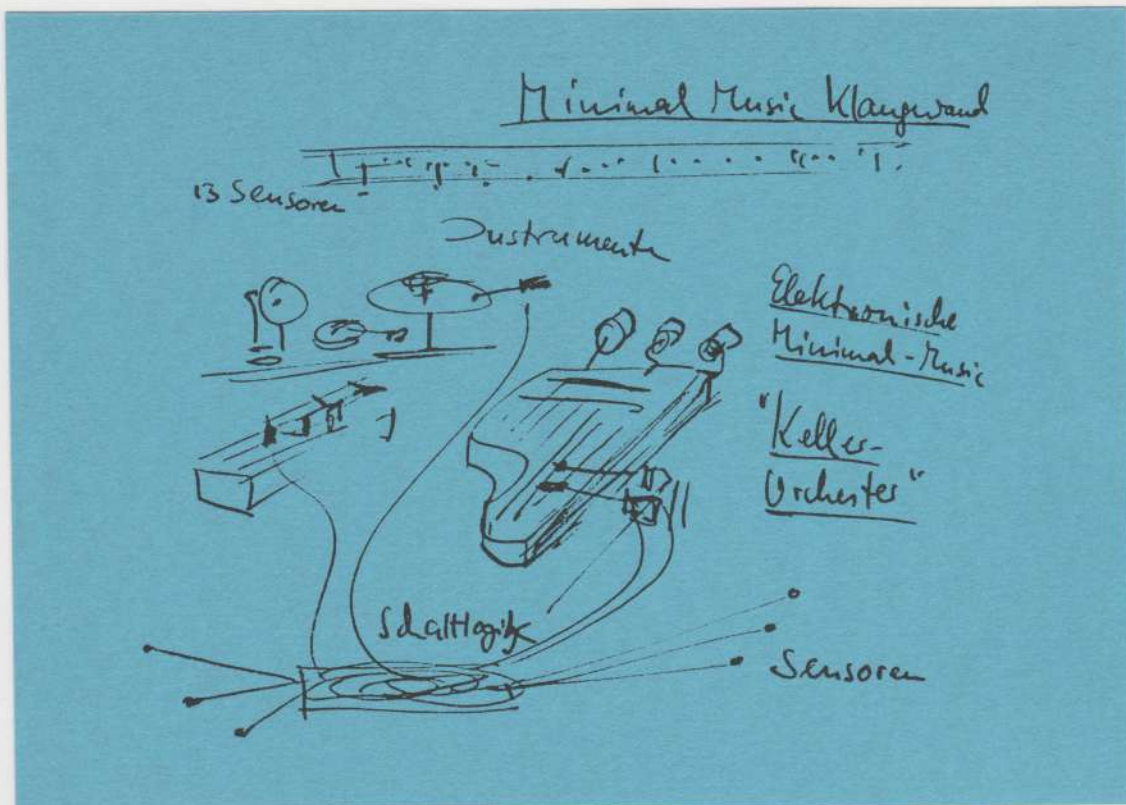 Minimal Music Klangwand
13 Sensoren
Instrumente
Elektronische
Minimal-Music
"Keller-
Orchester"
Schaltlogik
Sensoren